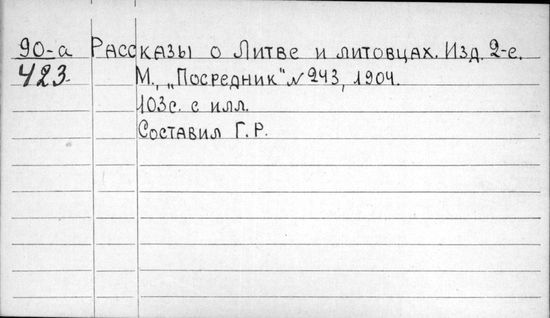 90-а Рассказы о Литве и литовцах. Изд. 2-е.
423. М., „Посредник“ № 243, 1904.
103с. с илл.
Составил Г.Р.